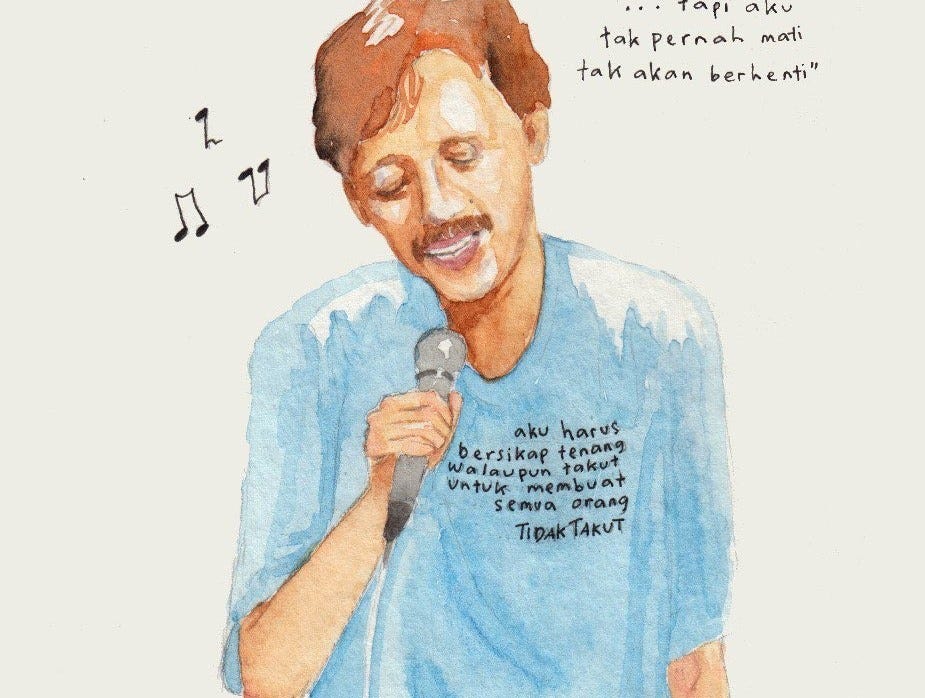 "... tapi aku
tak pernah mati
tak akan berhenti"
aku harus
bersikap tenang
walaupun takut
untuk membuat
semua orang
TIDAK TAKUT